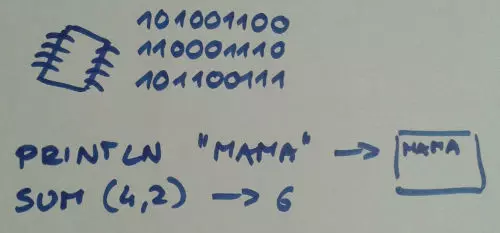 101001100
110001110
101100111
PRINTLN "MAMA" → MAMA
SUM (4,2) → 6